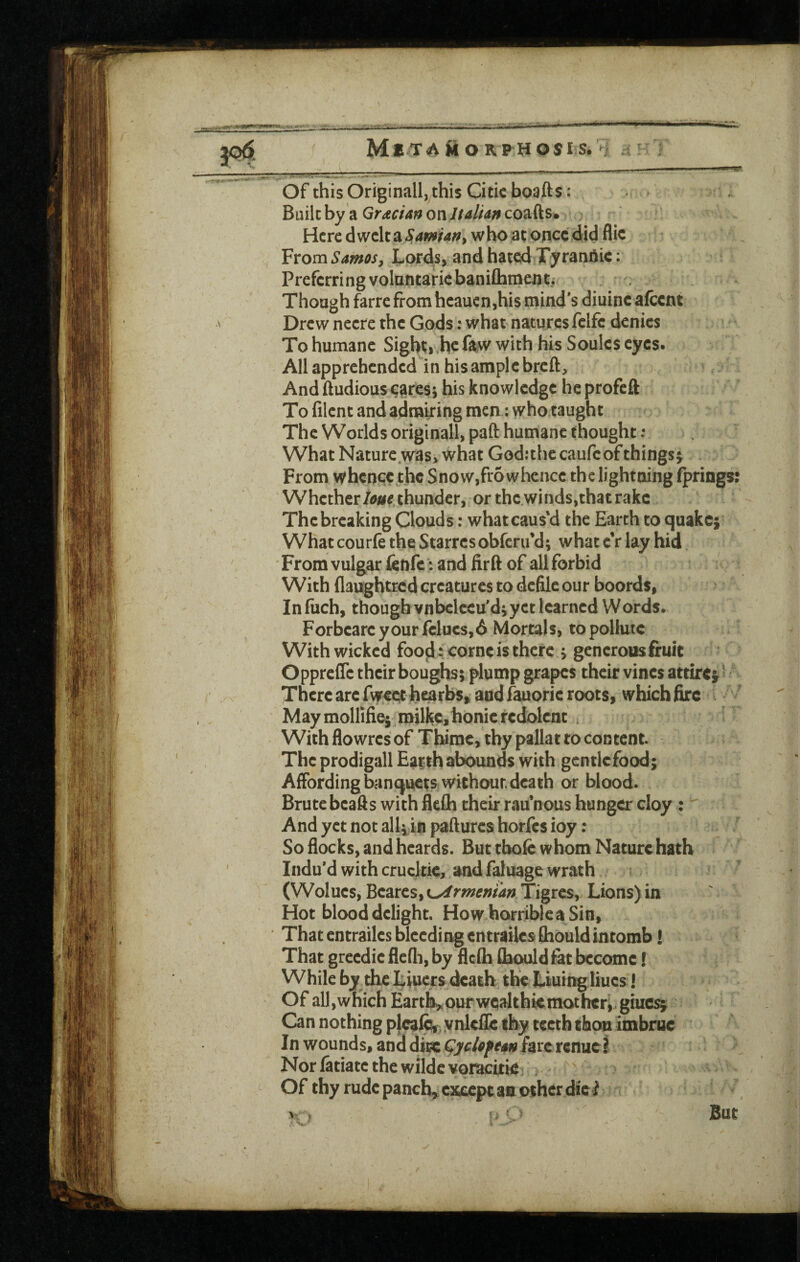 306 METAMORPHOSIS.
Of this Originall, this Citie boaſts:
Built by a Græcian on Italian coaſts.
Here dwelt a Samian, who at once did flie
From Samos, Lords, and hated Tyrannie:
Preferring voluntarie baniſhment.
Though farre from heauen, his mind's diuine aſcent
Drew neere the Gods: what natures ſelfe denies
To humane Sight, he ſaw with his Soules eyes.
All apprehended in his ample breſt,
And ſtudious cares; his knowledge he profeſt
To ſilent and admiring men: who taught
The Worlds originall, paſt humane thought:
What Nature was, what God: the cauſe of things;
From whence the Snow, frō whence the lightning ſprings:
Whether Ioue thunder, or the winds, that rake
The breaking Clouds: what caus'd the Earth to quake;
What courſe the Starres obſeru'd; what e'r lay hid
From vulgar ſenſe: and firſt of all forbid
With ſlaughtred creatures to defile our boords,
In ſuch, though vnbeleeu'd; yet learned Words.
Forbeare your ſelues, ô Mortals, to pollute
With wicked food: corne is there; generous fruit
Oppreſſe their boughs; plump grapes their vines attire;
There are ſweet hearbs, and ſauorie roots, which fire
May mollifie; milke, honie redolent
With flowres of Thime, thy pallat to content.
The prodigall Earth abounds with gentle food;
Affording banquets without death or blood.
Brute beaſts with fleſh their rau'nous hunger cloy:
And yet not all; in paſtures horſes ioy:
So flocks, and heards. But thoſe whom Nature hath
Indu'd with crueltie, and ſaluage wrath
(Wolues, Beares, Armenian Tigres, Lions) in
Hot blood delight. How horrible a Sin,
That entrailes bleeding entrailes ſhould intomb!
That greedie fleſh, by fleſh ſhould fat become!
While by the Liuers death the Liuing liues!
Of all, which Earth, our wealthie mother, giues;
Can nothing pleaſe, vnleſſe thy teeth thou imbrue
In wounds, and dire Cyclopean fare renue?
Nor ſatiate the wilde voracitie
Of thy rude panch, except an other die?
But